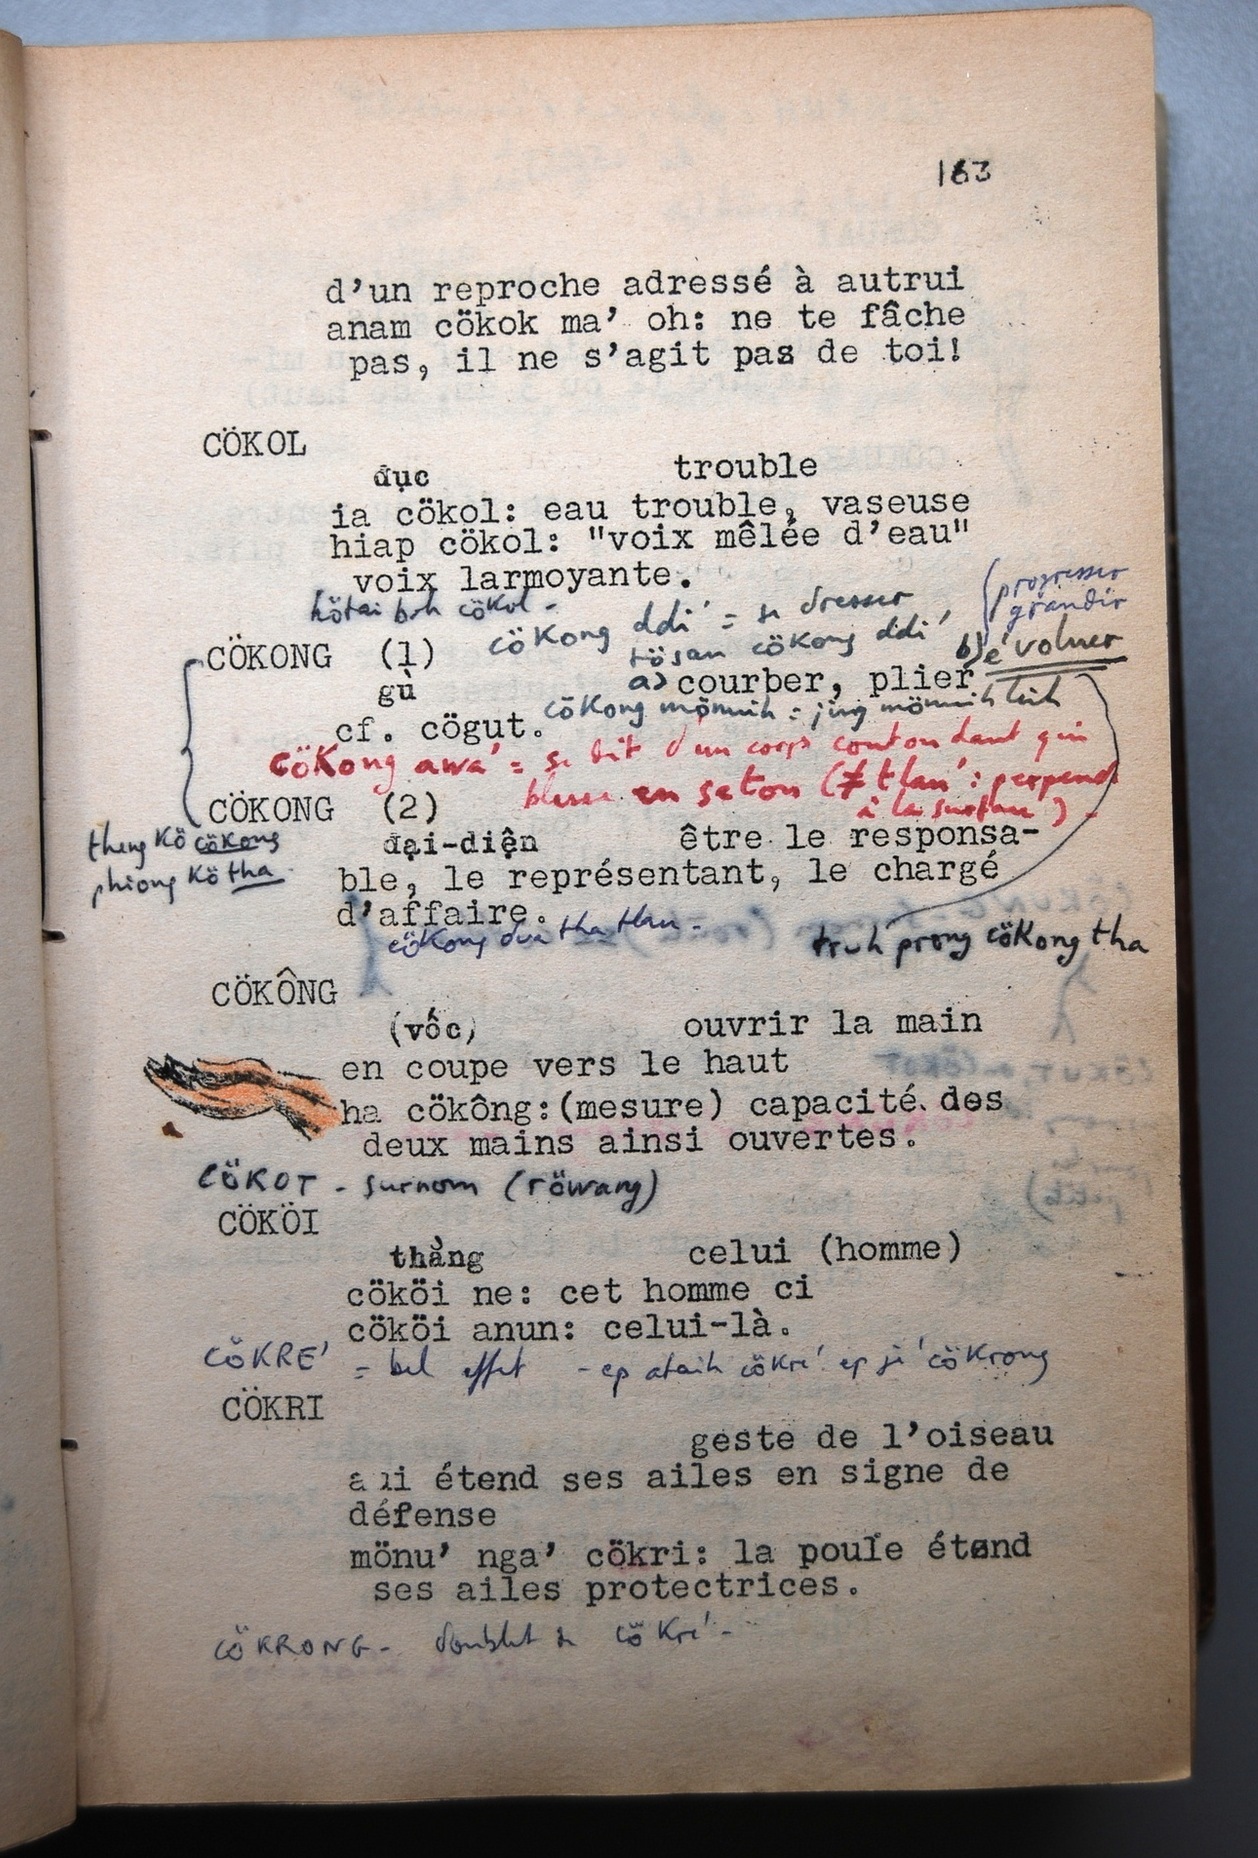 163
d'un reproche adressé à autrui
anam cökok ma' oh: ne te fâche
pas, il ne s'agit pas de toi!
CÖKOL
đục trouble
ia cökol: eau trouble, vaseuse
hiap cökol: "voix mêlée d'eau"
voix larmoyante.
cökol -
progresser
grandir
cökong ddi' = se dresser
CÖKONG (1) tösan cökong ddi' b) évoluer
gù a) courber, plier
cf. cögut. cökong mönuih = jing mönuih
cökong awa' = se dit d'un corps contondant qui
blesse en seton (≠ tlan': perpend
à la surface) -
CÖKONG (2)
theng kö cökong
phiong kö tha
đại-diện être le responsa-
ble, le représentant, le chargé
d'affaire.
cökong dua tha tlan -
truh prong cökong tha
CÖKÔNG
(vốc) ouvrir la main
en coupe vers le haut
ha cökông:(mesure) capacité des
deux mains ainsi ouvertes.
CÖKOT - surnom (röwang)
CÖKÖI
thằng celui (homme)
cököi ne: cet homme ci
cököi anun: celui-là.
CÖKRE' = bel effet - ep ataih cökre' ep ji' cökrong
CÖKRI
geste de l'oiseau
qui étend ses ailes en signe de
défense
mönu' nga' cökri: la poule étend
ses ailes protectrices.
CÖKRONG - doublet de cökre' -